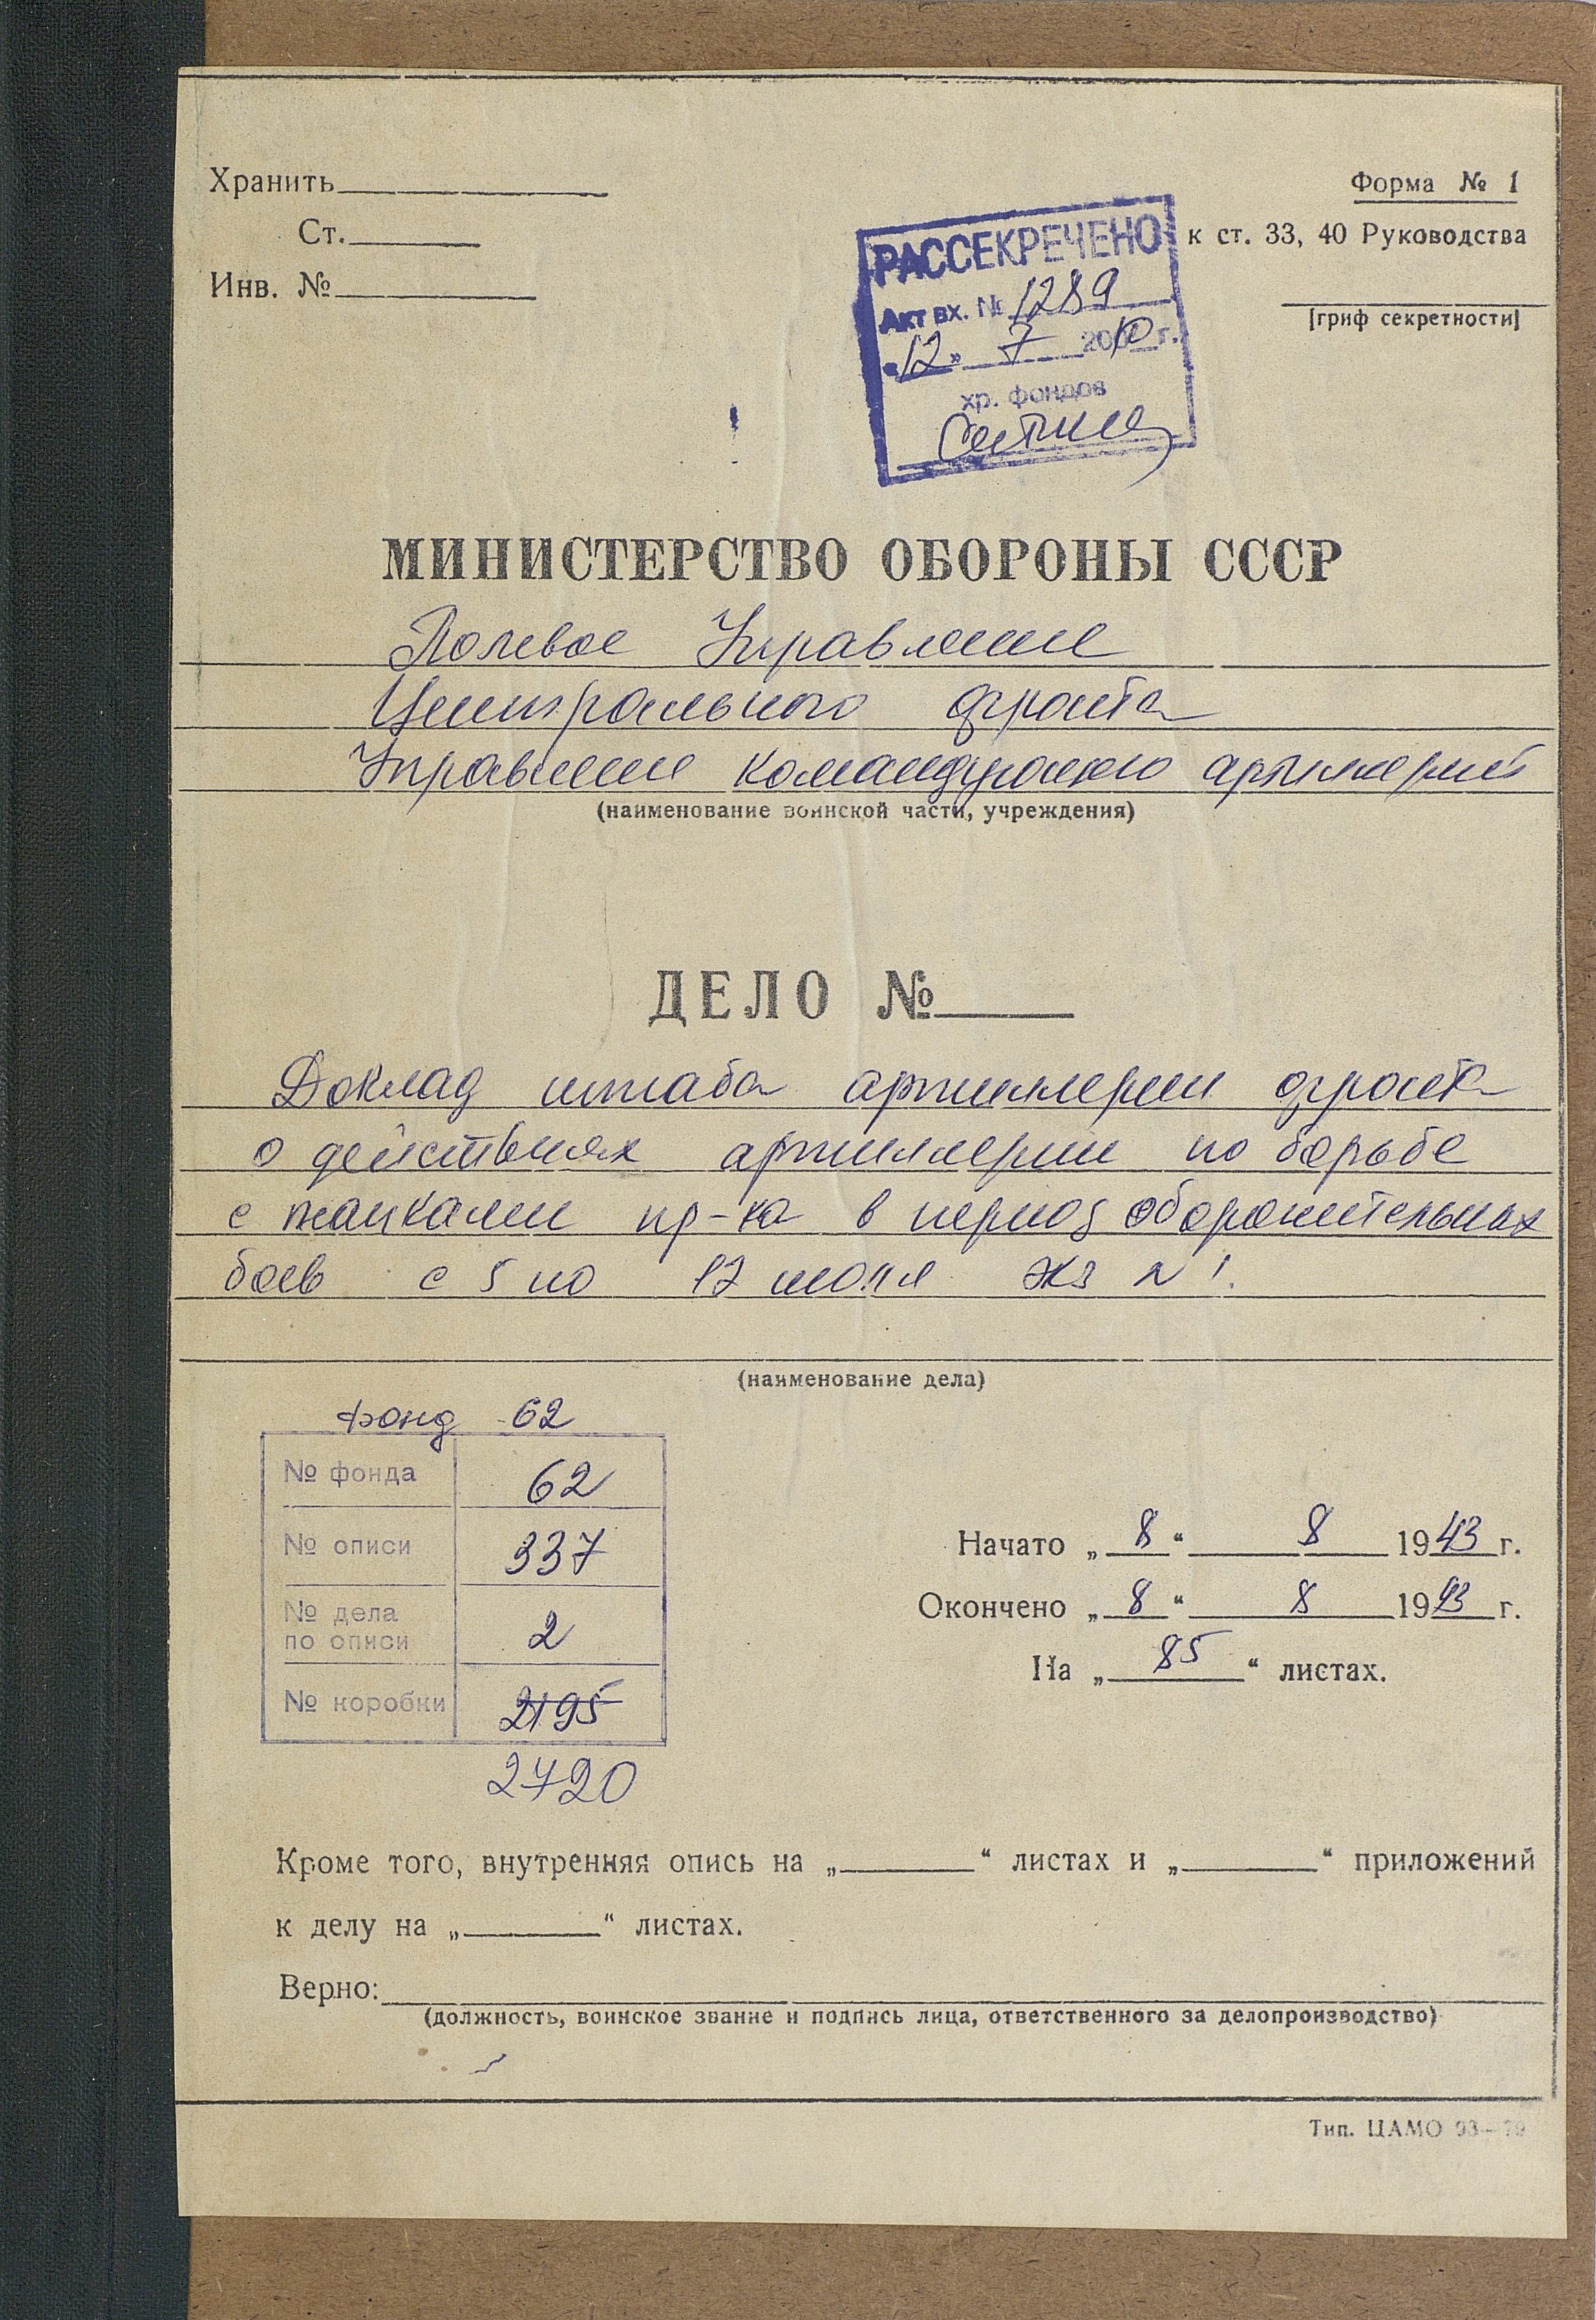 Хранить
Форма № 1
Ст.
к ст. 33, 40 Руководства
Инв. №
[гриф секретности]
РАССЕКРЕЧЕНО
Акт вх. № 1289
«12» 7 2010 г.
хр. фондов
МИНИСТЕРСТВО ОБОРОНЫ СССР
Полевое Управление
Центрального фронта
Управление командующего артиллерией
(наименование воинской части, учреждения)
ДЕЛО №
Доклад штаба артиллерии фронта
о действиях артиллерии по борьбе
с танками пр-ка в период оборонительных
боев с 5 по 12 июля экз № 1.
(наименование дела)
фонд 62
№ фонда 62
№ описи 337
№ дела по описи 2
№ коробки 2195
2720
Начато „8“ 8 1943 г.
Окончено „8“ 8 1943 г.
На „85“ листах.
Кроме того, внутренняя опись на „ “ листах и „ “ приложений
к делу на „ “ листах.
Верно:
(должность, воинское звание и подпись лица, ответственного за делопроизводство)
Тип. ЦАМО 93—79